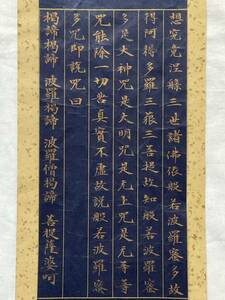 想究竟涅槃三世諸佛依般若波羅蜜多故
得阿耨多羅三藐三菩提故知般若波羅蜜
多是大神咒是大明咒是无上咒是无等等
咒能除一切苦真實不虛故説般若波羅蜜
多咒即説咒曰
揭諦揭諦 波羅揭諦 波羅僧揭諦 菩提薩婆呵